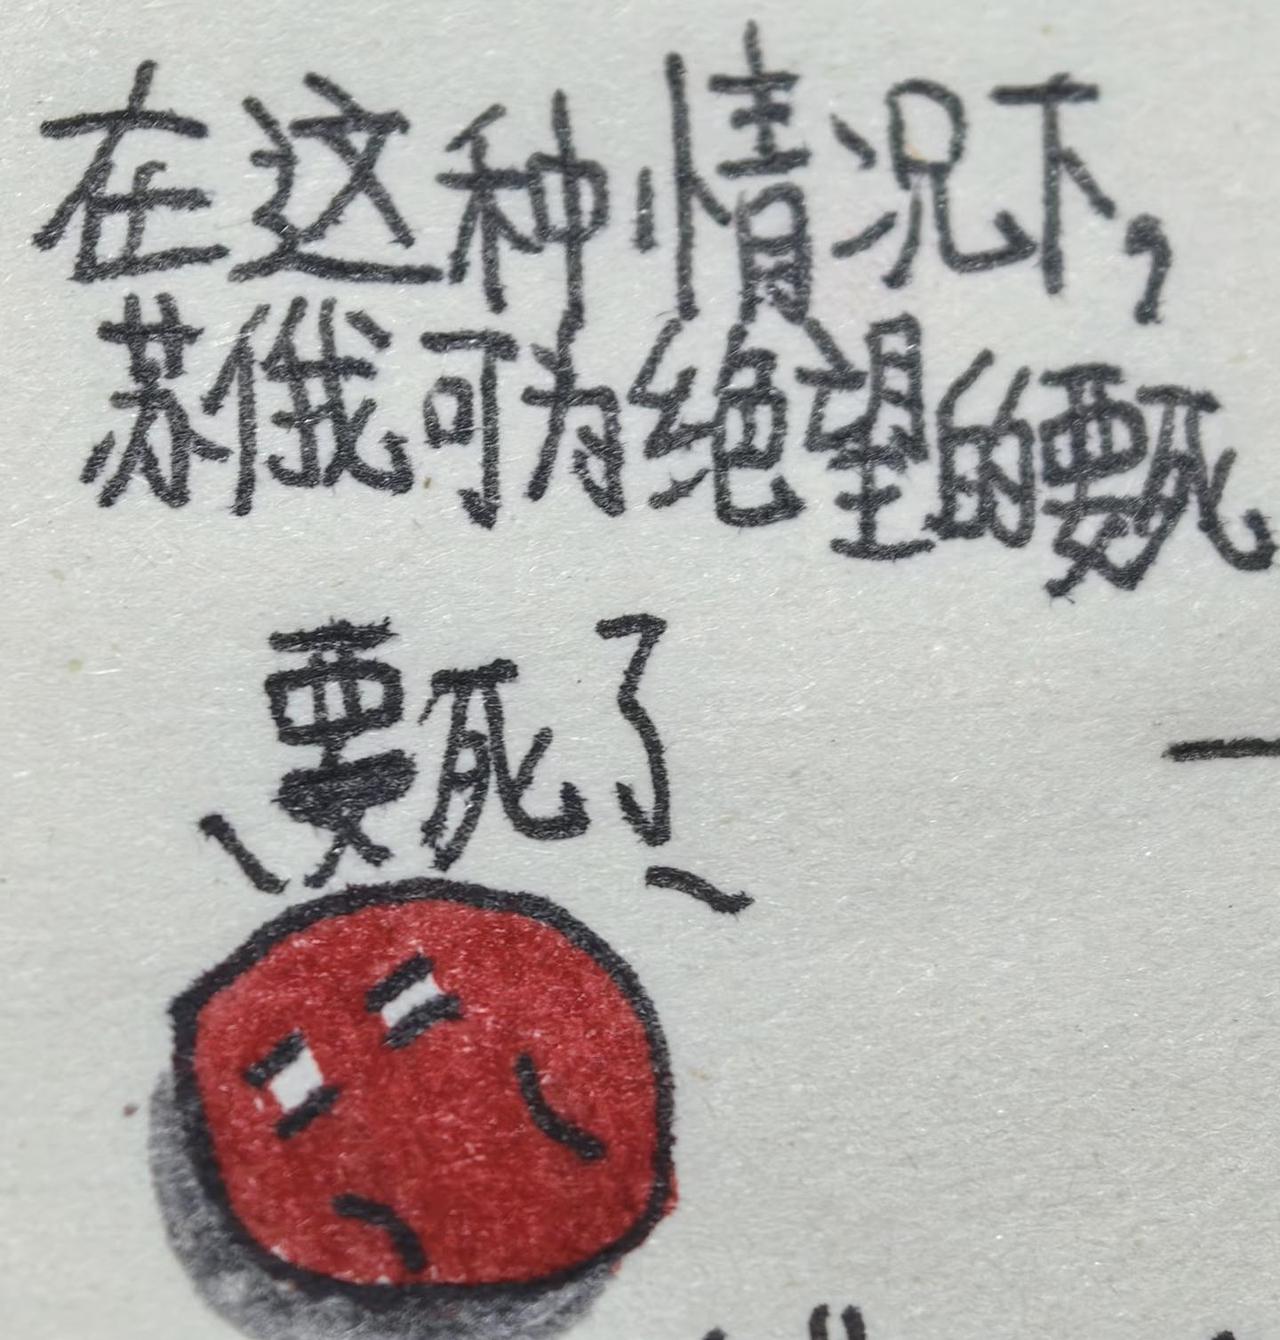 在这种情况下，
苏俄可为绝望的要死
要死了